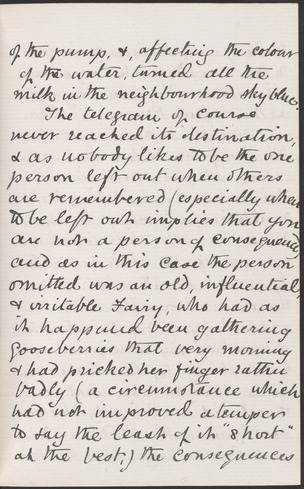 of the pump, &, affecting the colour
of the water, turned all the
milk in the neighbourhood sky blue.
The telegram of course
never reached its destination,
& as nobody likes to be the one
person left out when others
are remembered (especially when
to be left out implies that you
are not a person of consequence)
and as in this case the person
omitted was an old, influential
& irritable Fairy, who had as
it happened been gathering
gooseberries that very morning
& had pricked her finger rather
badly (a circumstance which
had not improved a temper
to say the least of it "short"
at the best,) the consequences